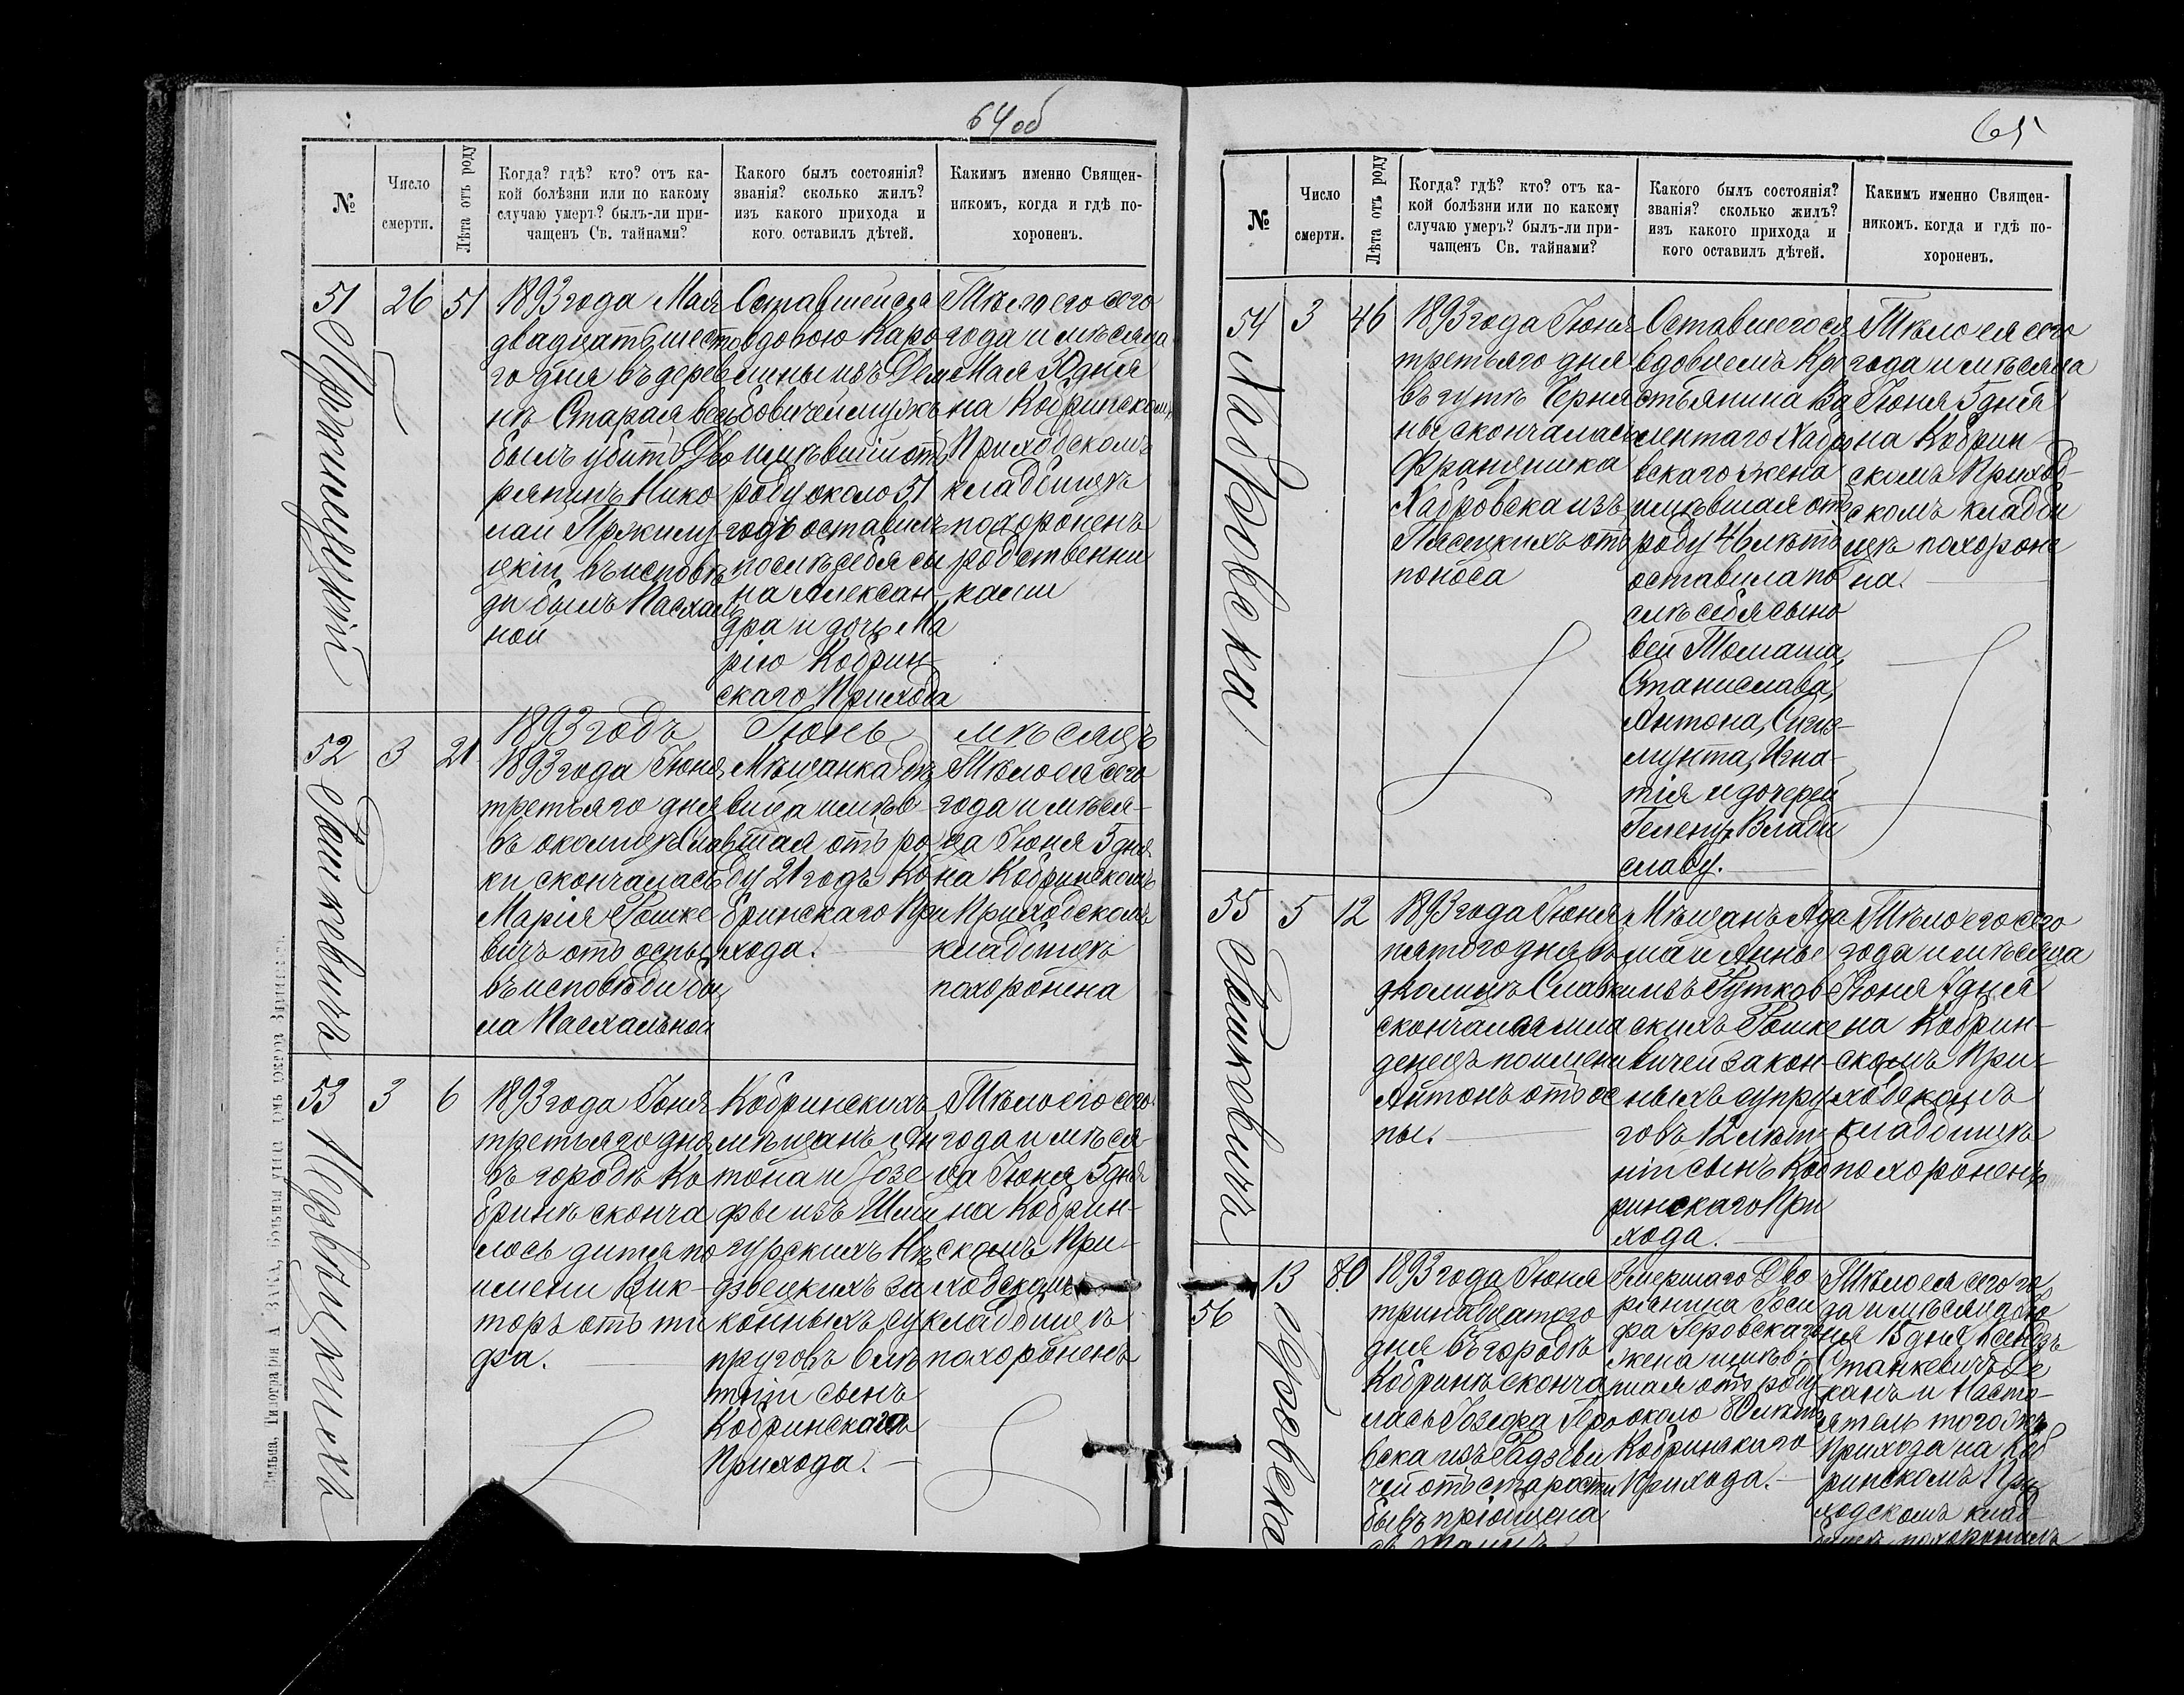 64 об
№
Число
смерти.
Лѣта отъ роду
Когда? гдѣ? кто? отъ ка-
кой болѣзни или по какому
случаю умеръ? былъ-ли при-
чащенъ Св. тайнами?
Какого былъ состоянія?
званія? сколько жилъ?
изъ какого прихода и
кого оставилъ дѣтей.
Какимъ именно Священ-
никомъ, когда и гдѣ по-
хороненъ.
51
26
51
1893 года Мая
двадцать шесто
го дня въ дерев
нѣ Старая весь
былъ убитъ Дво
рянинъ Нико
лай Пржилу
цкій въ исповѣ
ди былъ Пасхаль
ной
Оставшейся
вдовою Каро
лины изъ Дем
бовичей мужъ
имѣвшій отъ
роду около 51
годъ оставилъ
послѣ себя сы
на Алексан-
дра и дочь Ма
рію Кобрин-
скаго Прихода
Тѣло его сего
года и мѣсяца
Мая 30 дня
на Кобринскомъ
Приходскомъ
кладбищѣ
похороненъ
родственни
ками
1893 годъ Іюнь мѣсяцъ
52
Рошкевичъ
3
21
1893 года Іюня
третьяго дня
въ околицѣ Слав
ки скончалась
Марія Рошке
вичъ отъ оспы
въ исповѣди бы
ла Пасхальной
Мѣщанка дѣ
вица имѣв-
шая отъ ро
ду 21 годъ Ко
бринскаго При
хода.
Тѣло ея сего
года и мѣся-
ца Іюня 5 дня
на Кобринскомъ
Приходскомъ
кладбищѣ
похоронена
53
3
6
1893 года Іюня
третьяго дня
въ городѣ Ко
бринѣ сконча
лось дитя по
имени Вик-
торъ отъ ти
фа.
Кобринскихъ
мѣщанъ Ан
тона и Іозе
фы изъ
дзвецкихъ за
конныхъ су
пруговъ 6 лѣ
тній сынъ
Кобринскаго
Прихода.
Тѣло его сего
года и мѣся-
ца Іюня 5 дня
на Кобрин-
скомъ При-
ходскомъ
кладбищѣ
похороненъ
65
№
Число
смерти.
Лѣта отъ роду
Когда? гдѣ? кто? отъ ка-
кой болѣзни или по какому
случаю умеръ? былъ-ли при-
чащенъ Св. тайнами?
Какого былъ состоянія?
званія? сколько жилъ?
изъ какого прихода и
кого оставилъ дѣтей.
Какимъ именно Священ-
никомъ. когда и гдѣ по-
хороненъ.
54
Хабровска
3
46
1893 года Іюня
третьяго дня
въ гутѣ Черня
ны, скончалась
Францишка
Хабровска изъ
Пясецкихъ отъ
поноса
Оставшегося
вдовцемъ Кре
стьянина Ва
лентаго Хабро
вскаго жена
имѣвшая отъ
роду 46 лѣтъ
оставила по
слѣ себя сыно
вей Томаша,
Станислава,
Антона, Сигиз
мунта, Игна-
тія и дочерей
Гелену, Влади
славу.
Тѣло ея сего
года и мѣсяца
Іюня 5 дня
на Кобрин-
скомъ Приход-
скомъ кладби
щѣ похороне
на.
55
Рошкевичъ
5
12
1893 года Іюня
пятого дня въ
околицѣ Славки
скончался мла
денецъ по имени
Антонъ отъ ос
пы.
Мѣщанъ Ада
ма и Анны
изъ Рутков
скихъ Рошке
вичей закон-
ныхъ супру
говъ 12 лѣт-
ній сынъ Коб
ринскаго При
хода.
Тѣло его сего
года и мѣсяца
Іюня 7 дня
на Кобрин-
скомъ При-
ходскомъ
кладбищѣ
похороненъ
56
Геровска
13
80
1893 года Іюня
тринадцатого
дня въ городѣ
Кобринѣ сконча
лась Іозефа Геро
вска изъ
чей отъ старости
бывъ пріобщена
Умершаго Дво
рянина Іоси
фа Геровскаго
жена имѣв-
шая отъ роду
около 80 лѣтъ
Кобринскаго
Прихода.
Тѣло ея сего го
да и мѣсяца Ію
ня 15 дня Ксендзъ
Станкевичъ Де
канъ и Насто-
ятель тогожъ
Прихода на Коб
ринскомъ При
ходскомъ клад
бищѣ похоронилъ